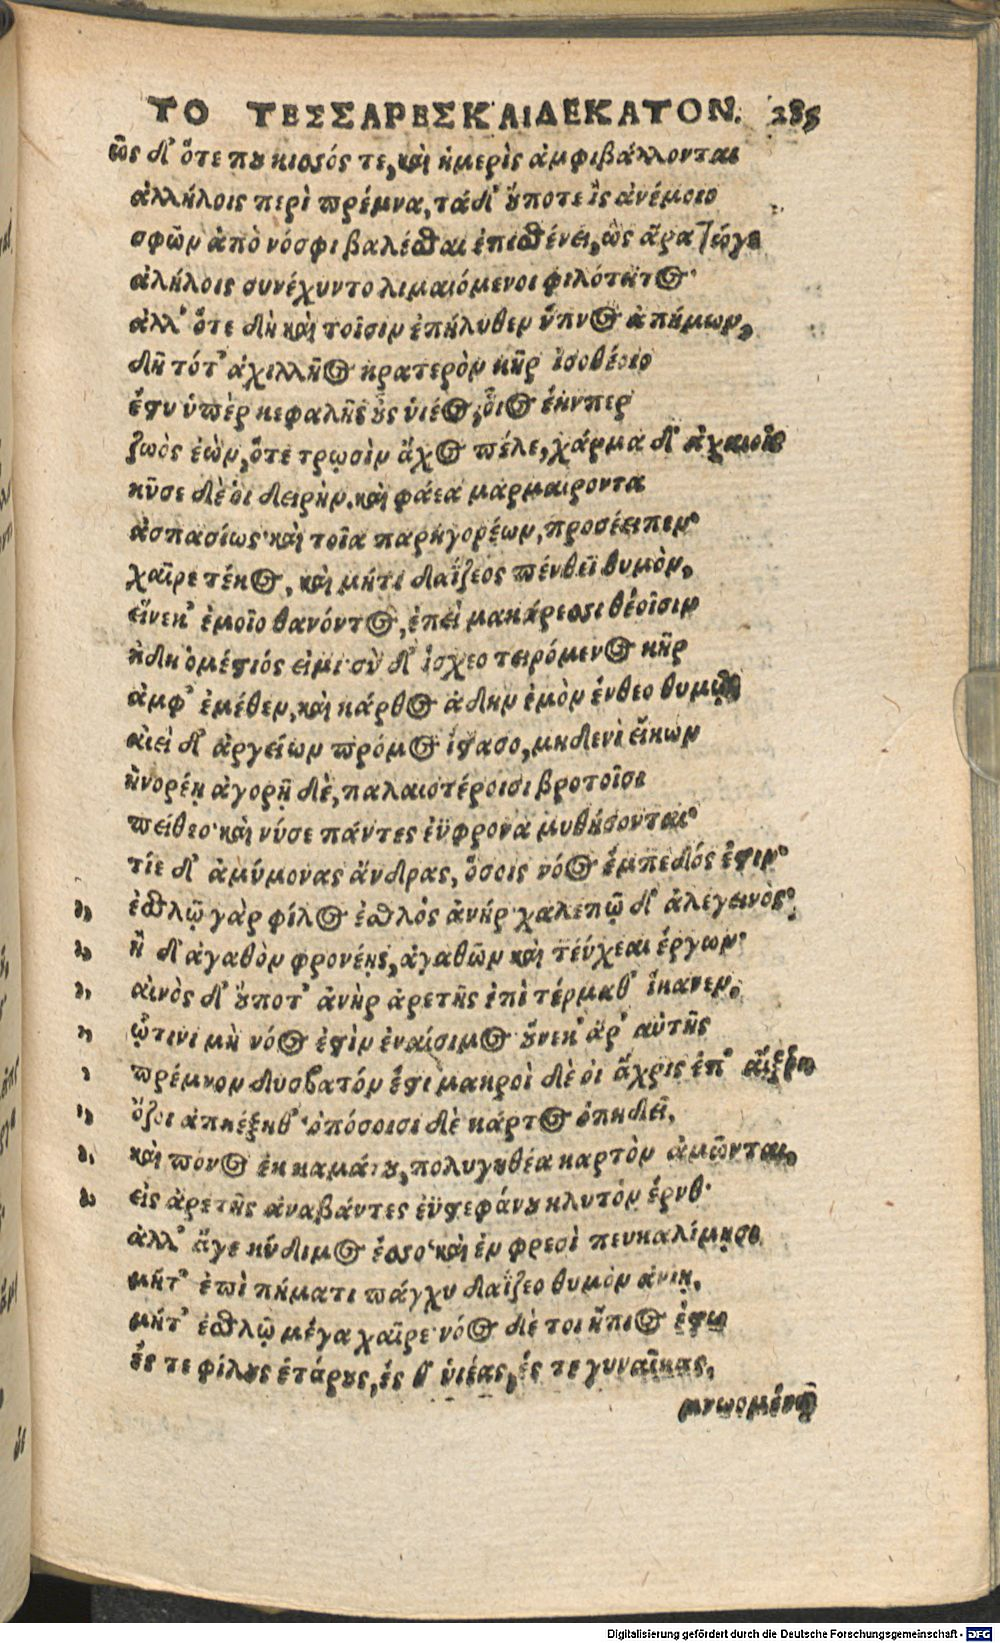 ΤΟ ΤΕΣΣΑΡΕΣΚΑΙΔΕΚΑΤΟΝ. 285
ὣς δ' ὅτε που κισσός τε, καὶ ἡμερὶς ἀμφιβάλλονται
ἀλλήλοις περὶ πρέμνα, τὰ δ' οὔποτε ἲς ἀνέμοιο
σφῶν ἀπὸ νόσφι βαλέσθαι ἐπισθένει, ὣς ἄρα τώγε
ἀλήλοις συνέχυντο λιμαιόμενοι φιλότητος·
ἀλλ' ὅτε δὴ καὶ τοῖσιν ἐπήλυθεν ὕπνος ἀπήμων,
δὴ τότ' ἀχιλλῆος κρατερὸν κῆρ ἰσοθέοιο
ἔστη ὑπὲρ κεφαλῆς οὗς υἱέος, οἷος ἔην περ
ζωὸς ἐὼν, ὅτε τρωσὶν ἄχος πέλε, χάρμα δ' ἀχαιοῖς
κῦσε δέ οἱ δειρὴν. καὶ φάεα μαρμαίροντα
ἀσπασίως· καὶ τοῖα παρηγορέων, προσέειπεν·
χαῖρε τέκος, καὶ μήτι δαΐζεος πένθεϊ θυμὸν,
εἵνεκ' ἐμοῖο θανόντος, ἐπεὶ μακάρεσσι θεοῖσιν
ἤδη ὁμέστιός εἰμι· σὺ δ' ἴσχεο τειρόμενος κῆρ
ἀμφ' ἐμέθεν, καὶ κάρθος ἄδην ἐμὸν ἔνθεο θυμῷ
αἰεὶ δ' ἀργείων πρόμος ἵστασο, μηδενὶ εἴκων
ἠνορέῃ ἀγορῇ δὲ, παλαιοτέροισι βροτοῖσι
πείθεο· καὶ νύ σε πάντες ἐΰφρονα μυθήσονται·
τίε δ' ἀμύμονας ἄνδρας, ὅσοις νόος ἔμπεδός ἐστιν·
ἐσθλῷ γὰρ φίλος ἐσθλὸς ἀνὴρ· χαλεπῷ δ' ἀλεγεινὸς·
ἢ δ' ἀγαθὸν φρονέῃς, ἀγαθῶν καὶ τεύχεαι ἔργων·
αἰνὸς δ' οὔποτ' ἀνὴρ ἀρετῆς ἐπὶ τέρμαθ' ἵκανεν,
ᾧτινι μὴ νόος ἐστὶν ἐναίσιμος οὕνεκ' ἄρ' αὐτῆς
πρέμνον δυσβατόν ἐστι μακροὶ δέ οἱ ἄχρις ἐπ'
ὄζοι ἀπηέξηθ' ὁπόσοισι δὲ κάρτος ὀπηδεῖ,
καὶ πόνος ἐκ καμάτου, πολυγηθέα καρπὸν ἀμῶνται,
εἰς ἀρετῆς ἀναβάντες ἐϋστεφάνου κλυτὸν ἔρνος·
ἀλλ' ἄγε κύδιμος ἔσσο· καὶ ἐν φρεσὶ πευκαλίμῃσι
μήτ' ἐπὶ πήματι πάγχυ δαΐζεο θυμὸν ἀνίῃ,
μήτ' ἐσθλῷ μέγα χαῖρε· νόος δὲ τοι ἤπιος ἔστω
ἔς τε φίλους ἑτάρους, ἔς θ' υἱέας, ἔς τε γυναῖκας,
μνωομένῳ
Digitalisierung gefördert durch die Deutsche Forschungsgemeinschaft - DFG